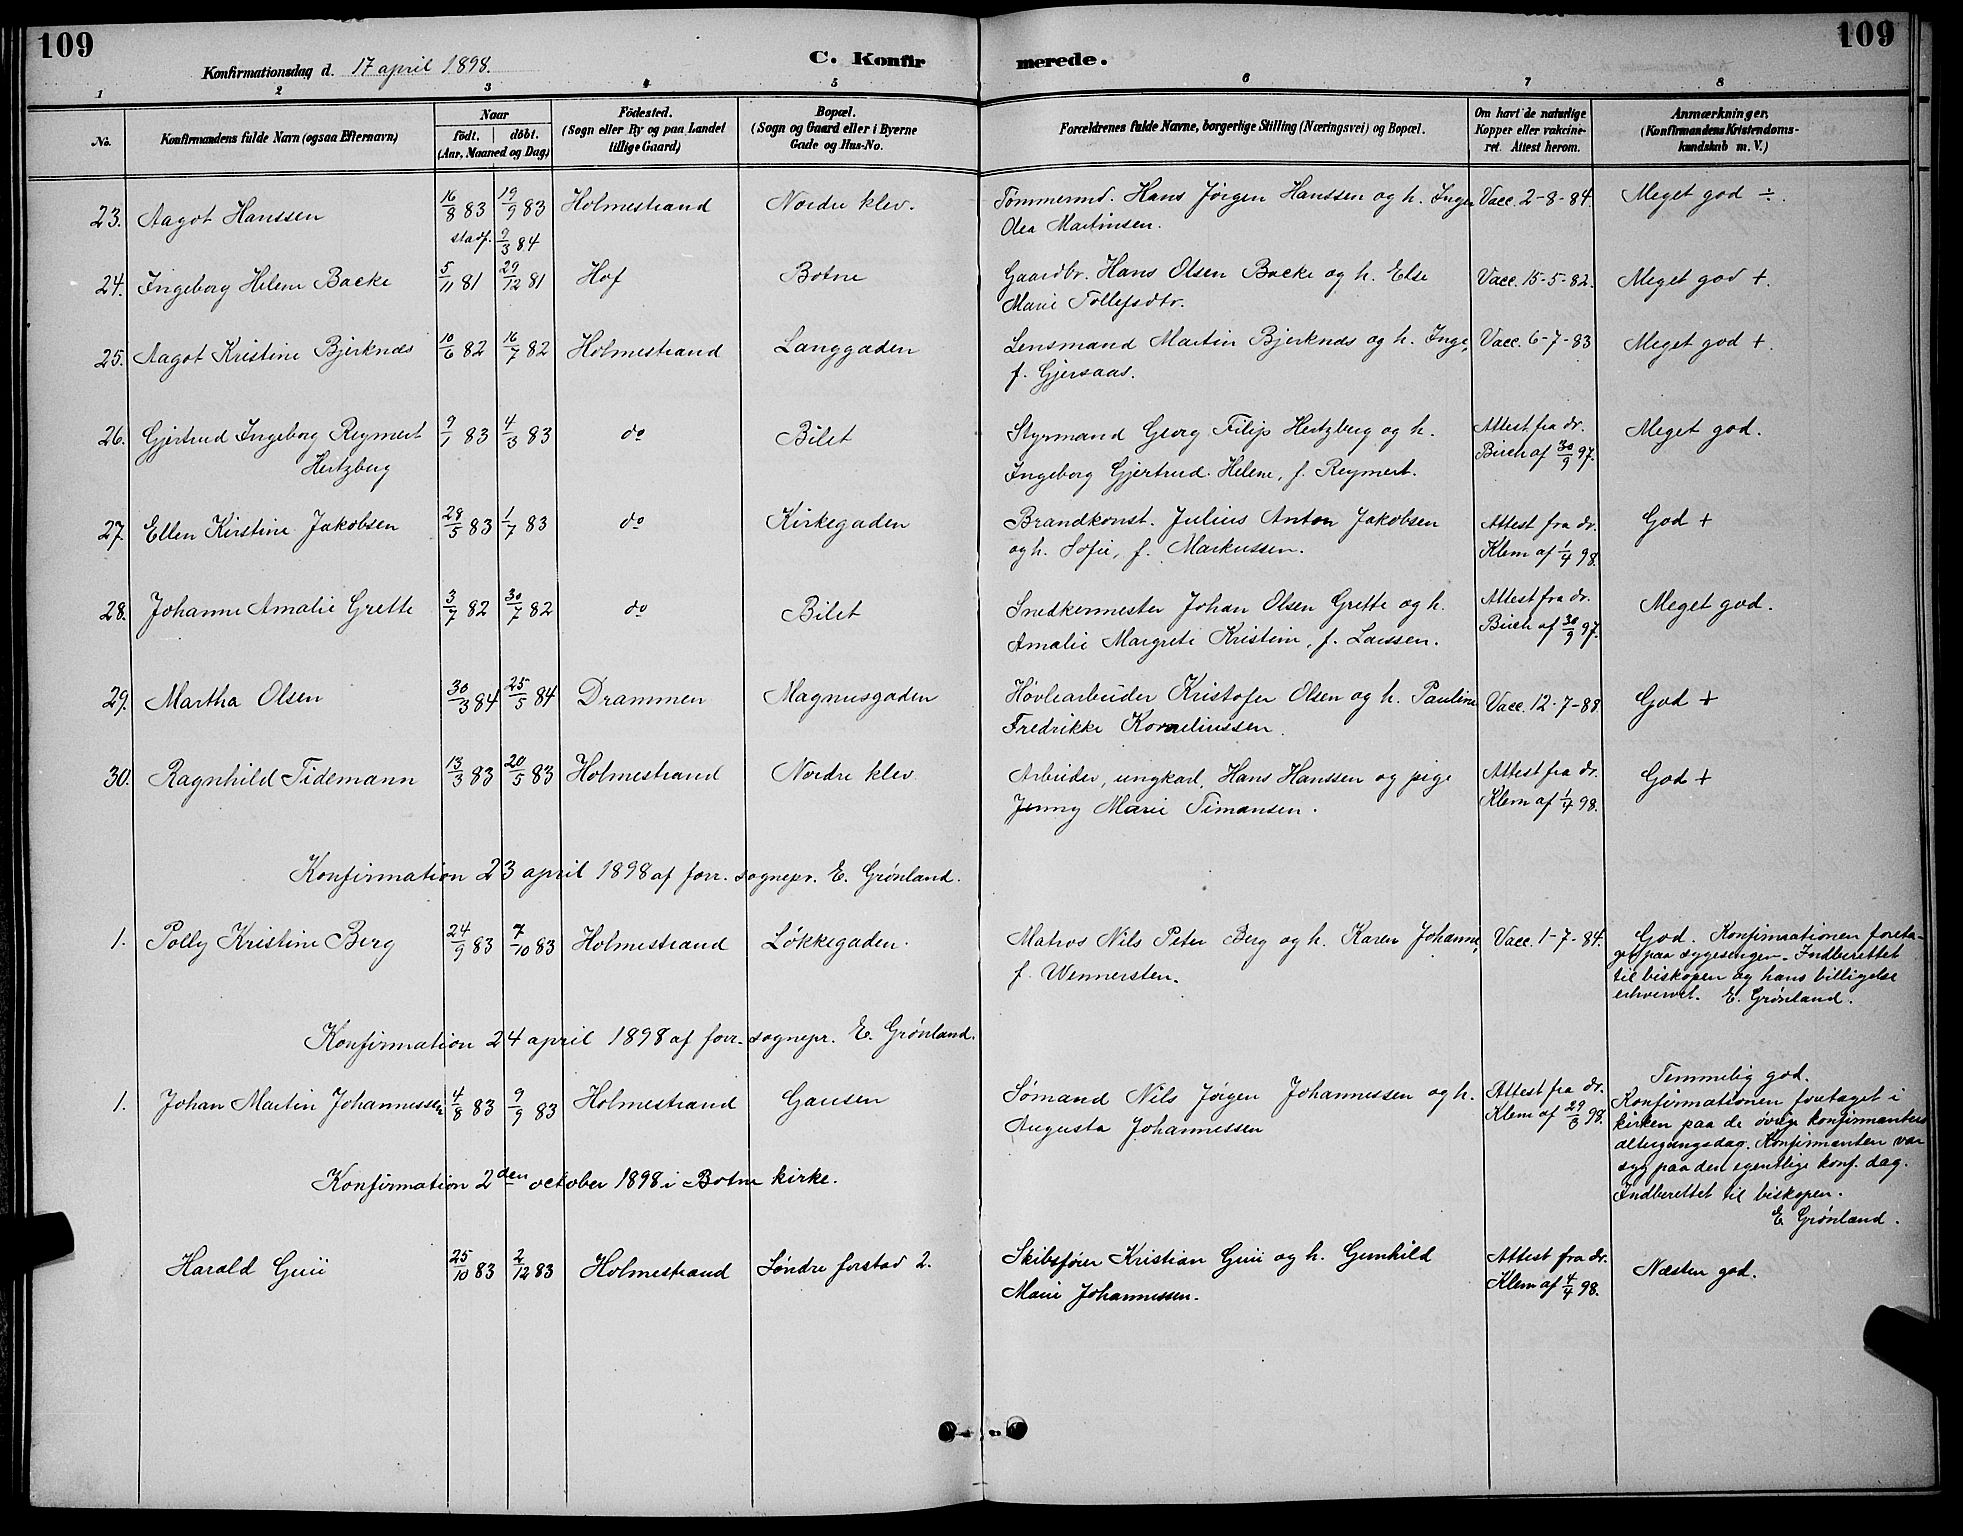 109
109
Konfirmationsdag d. 17 april 1898.
C. Konfirmerede.
1 2 3 4 5 6 7 8
No.
Konfirmandens fulde Navn (ogsaa Efternavn)
Naar
födt. döbt.
(Aar, Maaned og Dag)
Födested.
(Sogn eller By og paa Landet
tillige Gaard)
Bopæl.
(Sogn og Gaard eller i Byerne
Gade og Hus-No.
Forældrenes fulde Navne, borgerlige Stilling (Næringsvei) og Bopæl.
Om havt de naturlige
Kopper eller vakcine-
ret. Attest herom.
Anmærkninger.
(Konfirmandens Kristendoms-
kundskab m. V.)
23. Aagot Hanssen 16/8 83 19/9 83 Holmestrand Nordre klev. Tømmermd. Hans Jørgen Hanssen og h. Inger Vacc. 2-8-84. Meget god ÷.
stadf. 9/3 84 Olea Martinsen.
24. Ingeborg Helene Backe 5/11 81 29/12 81 Hof Botne Gaardbr. Hans Olsen Backe og h. Else Vacc. 15-5-82. Meget god +.
Marie Tollefsdtr.
25. Aagot Kristine Bjerknæs 10/6 82 16/7 82 Holmestrand Langgaden Lensmand Martin Bjerknæs og h. Inge, Vacc. 6-7-83 Meget god +.
f. Gjersaas.
26. Gjertrud Ingeborg Reymert 9/1 83 4/3 83 do Bilet Styrmand Georg Filip Hertzberg og h. Attest fra dr. Meget god.
Hertzberg Ingeborg Gjertrud Helene, f. Reymert. Birch af 30/9 97.
27. Ellen Kirstine Jakobsen 28/5 83 1/7 83 do Kirkegaden Brandkonst. Julius Anton Jakobsen Attest fra dr. God +
og h. Sofie, f. Markussen. Klem af 1/4 98.
28. Johanne Amalie Grette 3/7 82 30/7 82 do Bilet Snedkermester Johan Olsen Grette og h. Attest fra dr. Meget god.
Amalie Margrete Kristine, f. Larssen. Birch af 30/9 97.
29. Martha Olsen 30/3 84 25/5 84 Drammen Magnusgaden Høvlearbeider Kristofer Olsen og h. Pauline Vacc. 12-7-88 God +
Fredrikke Korneliussen.
30. Ragnhild Tidemann 13/3 83 20/5 83 Holmestrand Nordre klev Arbeider, ungkarl, Hans Hanssen og pige Attest fra dr. God +
Jenny Marie Timansen. Klem af 1/4 98.
Konfirmation 23 april 1898 af forr. sognepr. E. Grønland.
1. Polly Kristine Berg 24/9 83 7/10 83 Holmestrand Løkkegaden. Matros Nils Peter Berg og h. Karen Johanne, Vacc. 1-7-84. God. Konfirmationen foreta-
f. Wennersten. get paa sygesengen. Indberettet
til biskopen og hans billigelse
erhvervet. E. Grønland.
Konfirmation 24 april 1898 af forr. sognepr. E. Grønland.
1. Johan Martin Johannessen 4/8 83 9/9 83 Holmestrand Gausen Sømand Nils Jørgen Johannessen og h. Attest fra dr. Temmelig god.
Augusta Johannessen Klem af 29/3 98. Konfirmationen foretaget i
kirken paa de øvrige konfirmanters
altergangsdag. Konfirmanten var
syg paa den egentlige konf. dag.
Indberettet til biskopen.
E. Grønland.
Konfirmation 2den october 1898 i Botne kirke.
Harald 25/10 83 2/12 83 Holmestrand Søndre forstad 2. Skibsfører Kristian og h. Gunhild Attest fra dr. Næsten god.
Marie Johannessen. Klem af 4/4 98.